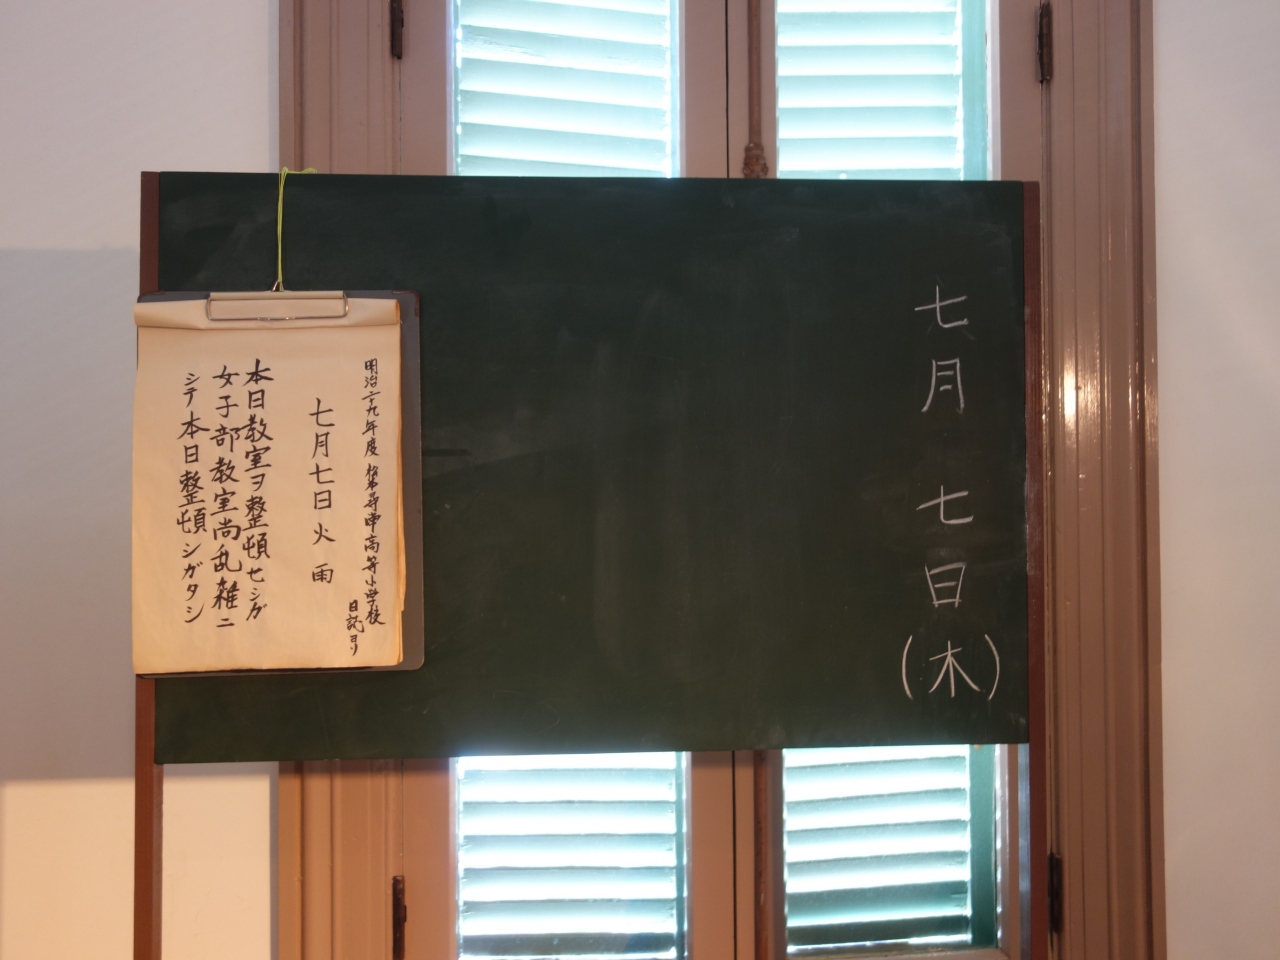 七月七日(木)
明治二十九年度 松本尋常高等小学校
日誌ヨリ
七月七日火雨
本日教室ヲ整頓セシガ
女子部教室尚乱雑ニ
シテ本日整頓シガタシ